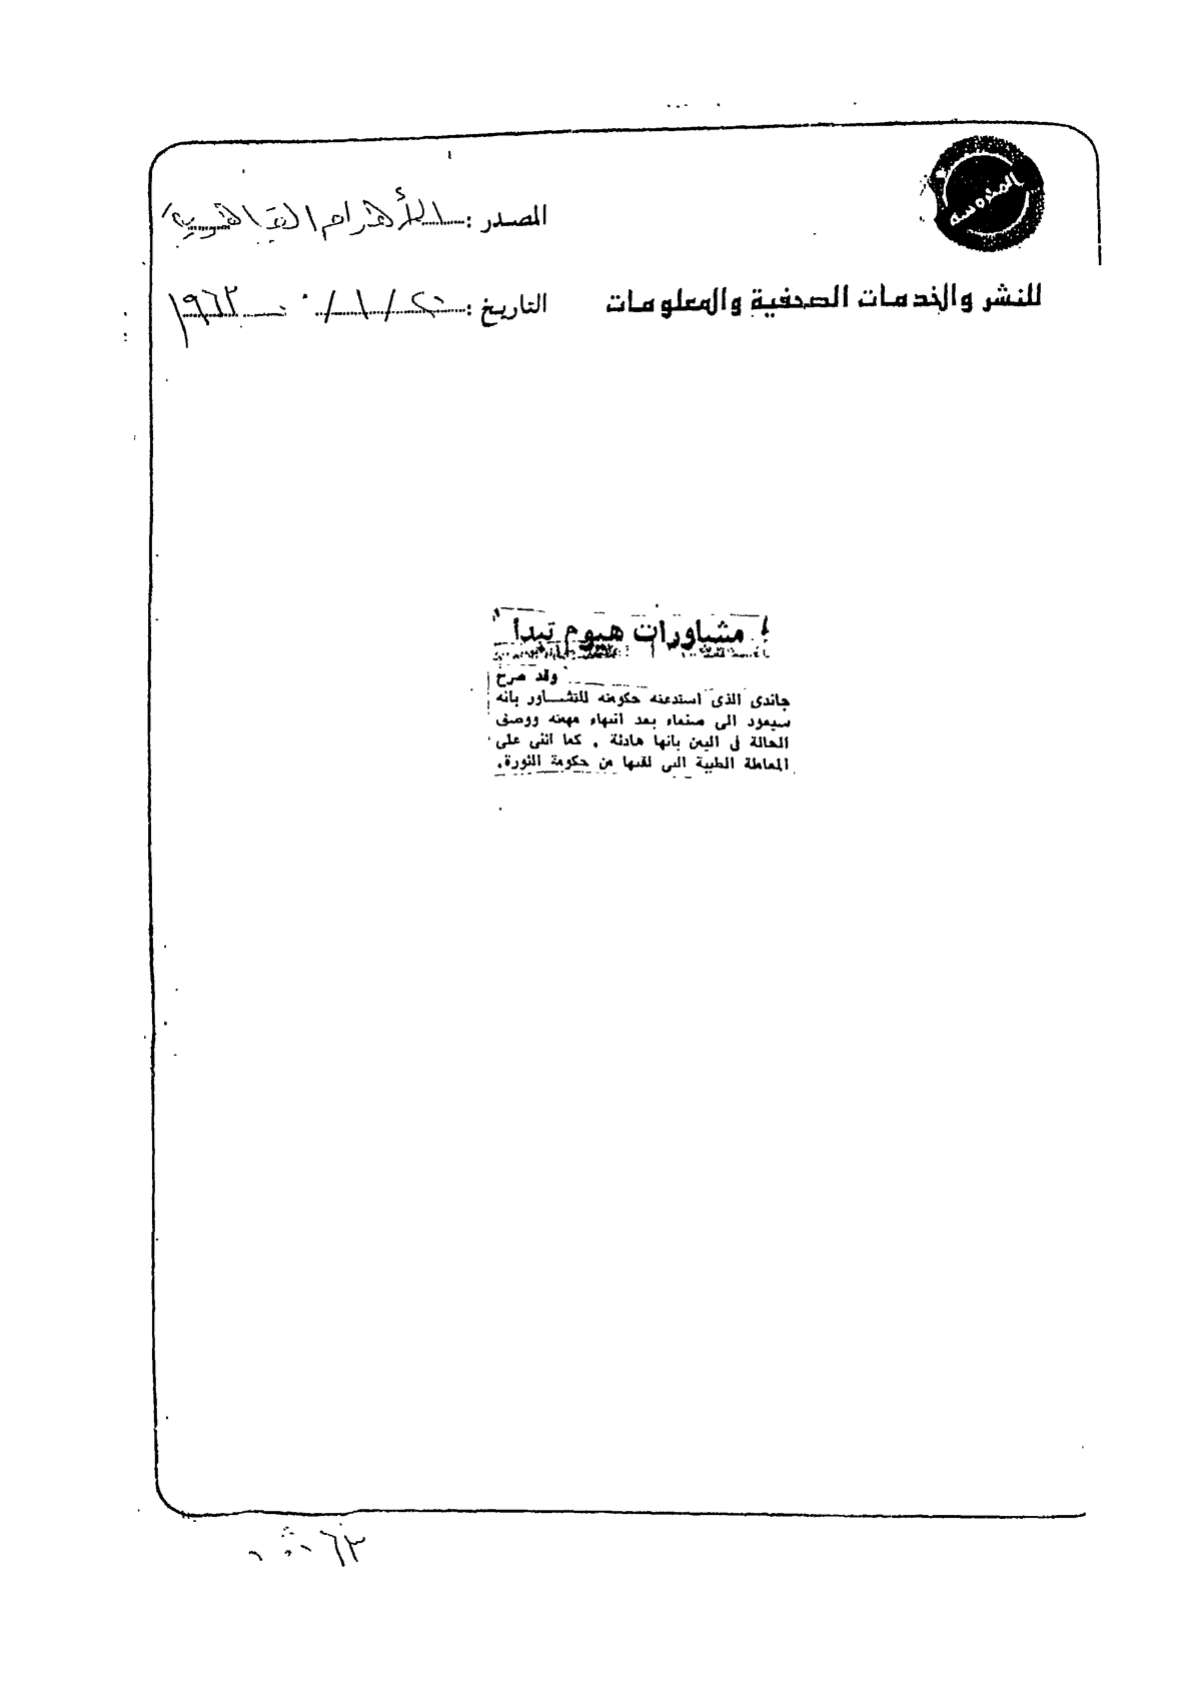 المحروسة
المصدر : الأهرام القاهرية
للنشر والخدمات الصحفية والمعلومات
التاريخ : / ١ / ١٩٦٣
مشاورات هيوم تبدأ
وقد صرح
جاندى الذى استدعته حكومته للتشاور بانه
سيعود الى صنعاء بعد انتهاء مهمته ووصف
الحالة فى اليمن بانها هادئة . كما اثنى على
المعاملة الطيبة التى لقيها من حكومة الثورة .